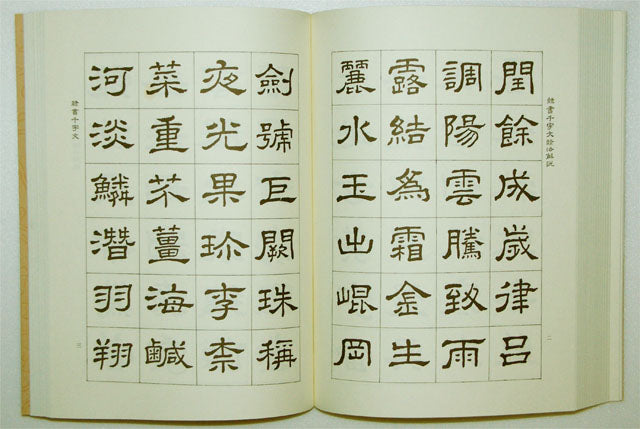 隸書千字文 解説
二
閏餘成歲律呂
調陽雲騰致雨
露結為霜金生
麗水玉出崐岡
劍號巨闕珠稱
夜光果珍李柰
菜重芥薑海鹹
河淡鱗潛羽翔
隸書千字文
三